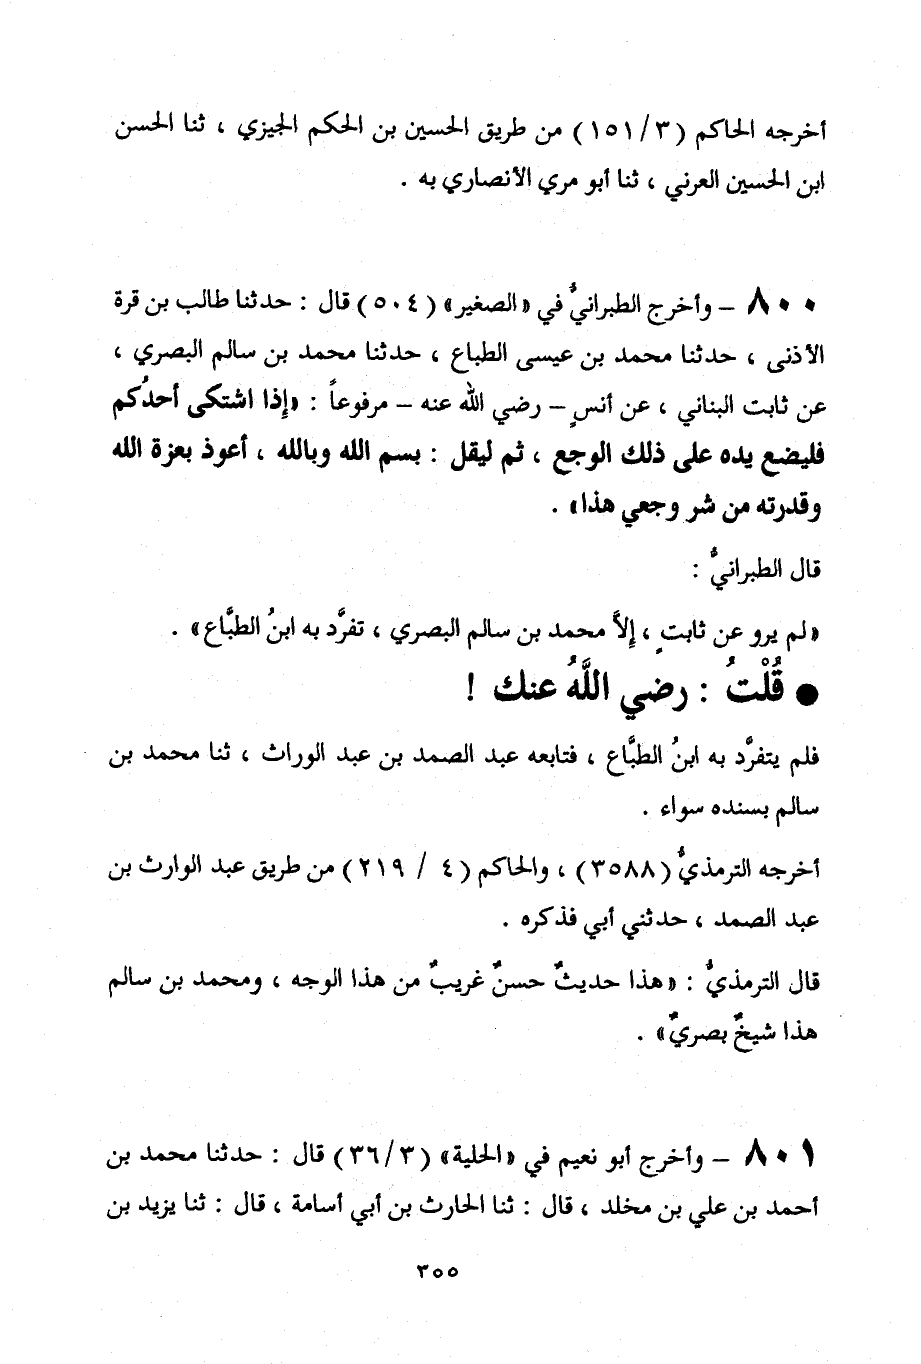 أخرجه الحاكم (٣/١٥١) من طريق الحسين بن الحكم الجيزي ، ثنا الحسن
ابن الحسين العرني ، ثنا أبو مري الأنصاري به .
٨٠٠ – وأخرج الطبرانيُّ في «الصغير» (٥٠٤) قال : حدثنا طالب بن قرة
الأذنى ، حدثنا محمد بن عيسى الطباع ، حدثنا محمد بن سالم البصري ،
عن ثابت البناني ، عن أنسٍ – رضي الله عنه – مرفوعاً : «إذا اشتكى أحدُكم
فليضع يده على ذلك الوجع ، ثم ليقل : بسم الله وبالله ، أعوذ بعزة الله
وقدرته من شر وجعي هذا» .
قال الطبرانيُّ :
«لم يرو عن ثابتٍ ، إلاَّ محمد بن سالم البصري ، تفرَّد به ابنُ الطبَّاع» .
● قُلْتُ : رضي اللَّهُ عنك !
فلم يتفرَّد به ابنُ الطبَّاع ، فتابعه عبد الصمد بن عبد الوراث ، ثنا محمد بن
سالم بسنده سواء .
أخرجه الترمذيُّ (٣٥٨٨) ، والحاكم (٤ / ٢١٩) من طريق عبد الوارث بن
عبد الصمد ، حدثني أبي فذكره .
قال الترمذيُّ : «هذا حديثٌ حسنٌ غريبٌ من هذا الوجه ، ومحمد بن سالم
هذا شيخٌ بصريٌ» .
٨٠١ – وأخرج أبو نعيم في «الحلية» (٣/٣٦) قال : حدثنا محمد بن
أحمد بن علي بن مخلد ، قال : ثنا الحارث بن أبي أسامة ، قال : ثنا يزيد بن
٣٥٥